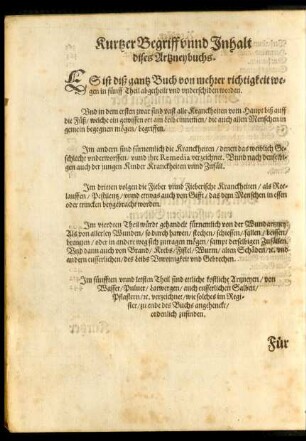 Kurtzer Begriff vnnd Inhalt
dises Artzneybuchs.
ES ist diß gantz Buch von mehrer richtigkeit we-
gen in fünff Theil abgetheilt vnd vnderschiden worden.
Vnd in dem ersten zwar sind vast alle Kranckheiten vom Haupt biß auff
die Füß / welche ein gewissen ort am leib einnemen / die auch allen Menschen in
gemein begegnen mögen / begriffen.
Im andern sind fürnemlich die Kranckheiten / denen das weiblich Ge-
schlecht vnderworffen / vnnd ihre Remedia verzeichnet. Vnnd nach denselbi-
gen auch der jungen Kinder Kranckheiten vnnd Zufäll.
Im dritten volgen die Fieber vnnd Fieberische Kranckheiten / als Rot-
lauffen / Pestilentz / vnnd etwas auch von Gifft / das dem Menschen in essen
oder trincken beygebracht worden.
Im vierdten Theil würdt gehandelt fürnemlich von der Wundartzney:
Als von allerley Wunden / so durch hawen / stechen / schiessen / fallen / beissen /
brengen / oder in andere weg sich zutragen mögen / sampt derselbigen Zufällen.
Vnd dann auch von Brand / Krebs / Fistel / Wurm / alten Schäden / ꝛc. vnd
andern eusserlichen / des leibs Vnreinigkeit vnd Gebrechen.
Im fünfften vnnd letsten Theil sind etliche köstliche Artzneyen / von
Wasser / Puluer / Latwergen / auch eusserlichen Salben /
Pflastern / ꝛc. verzeichnet / wie solches im Regi-
ster / zu ende des Buchs angehenckt /
ordenlich zufinden.
Für